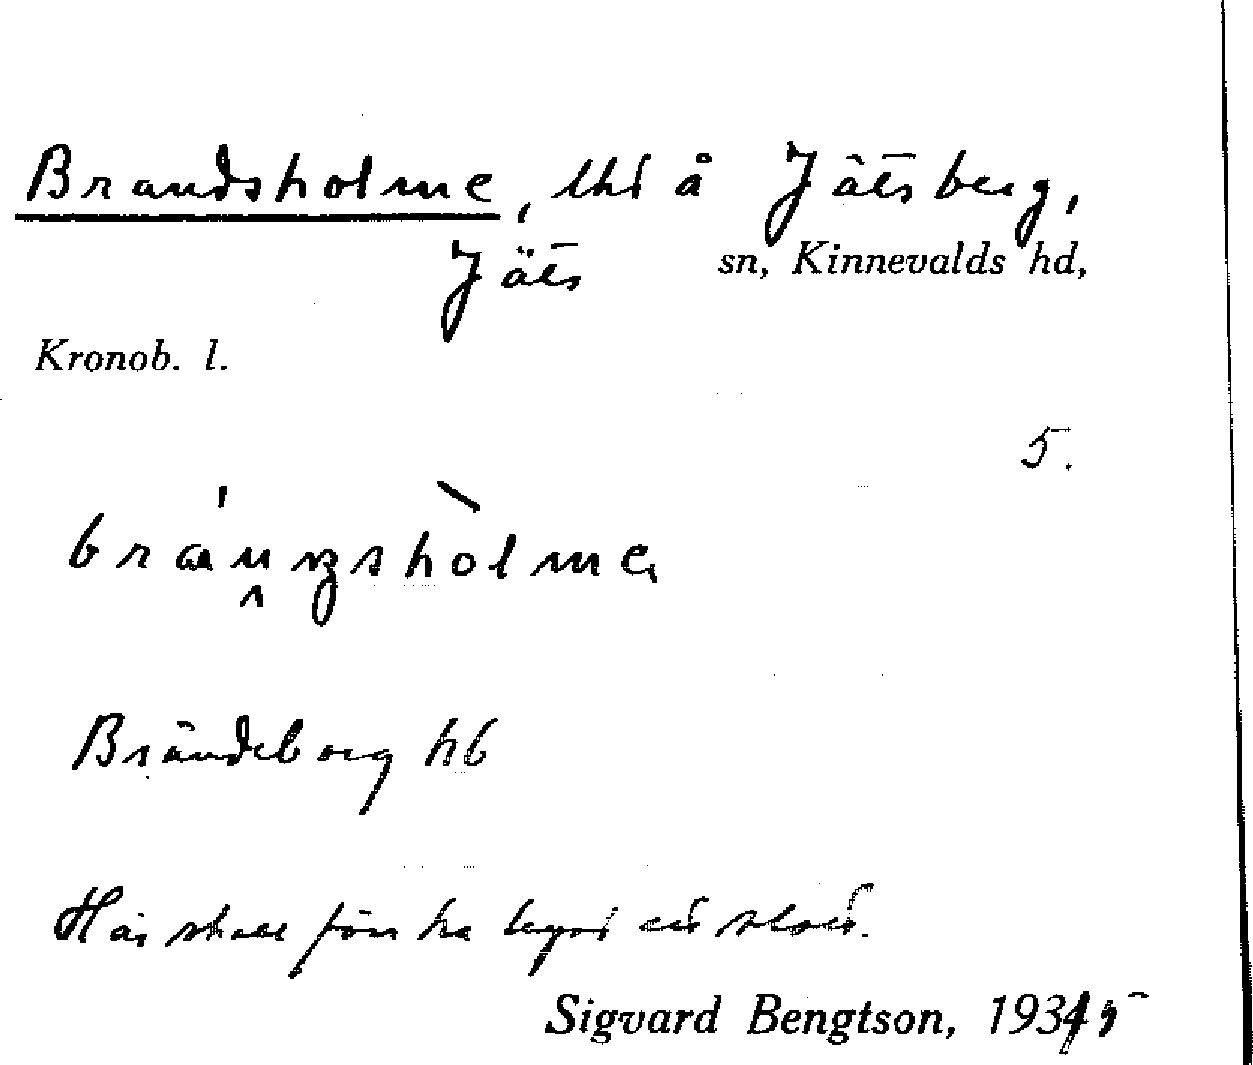 Brandsholme, lht å Jätsberg,
Jäts sn, Kinnevalds hd,
Kronob. l.
5.
Brändeborg hb
Här skall förr ha legat ett slott.
Sigvard Bengtson, 1935